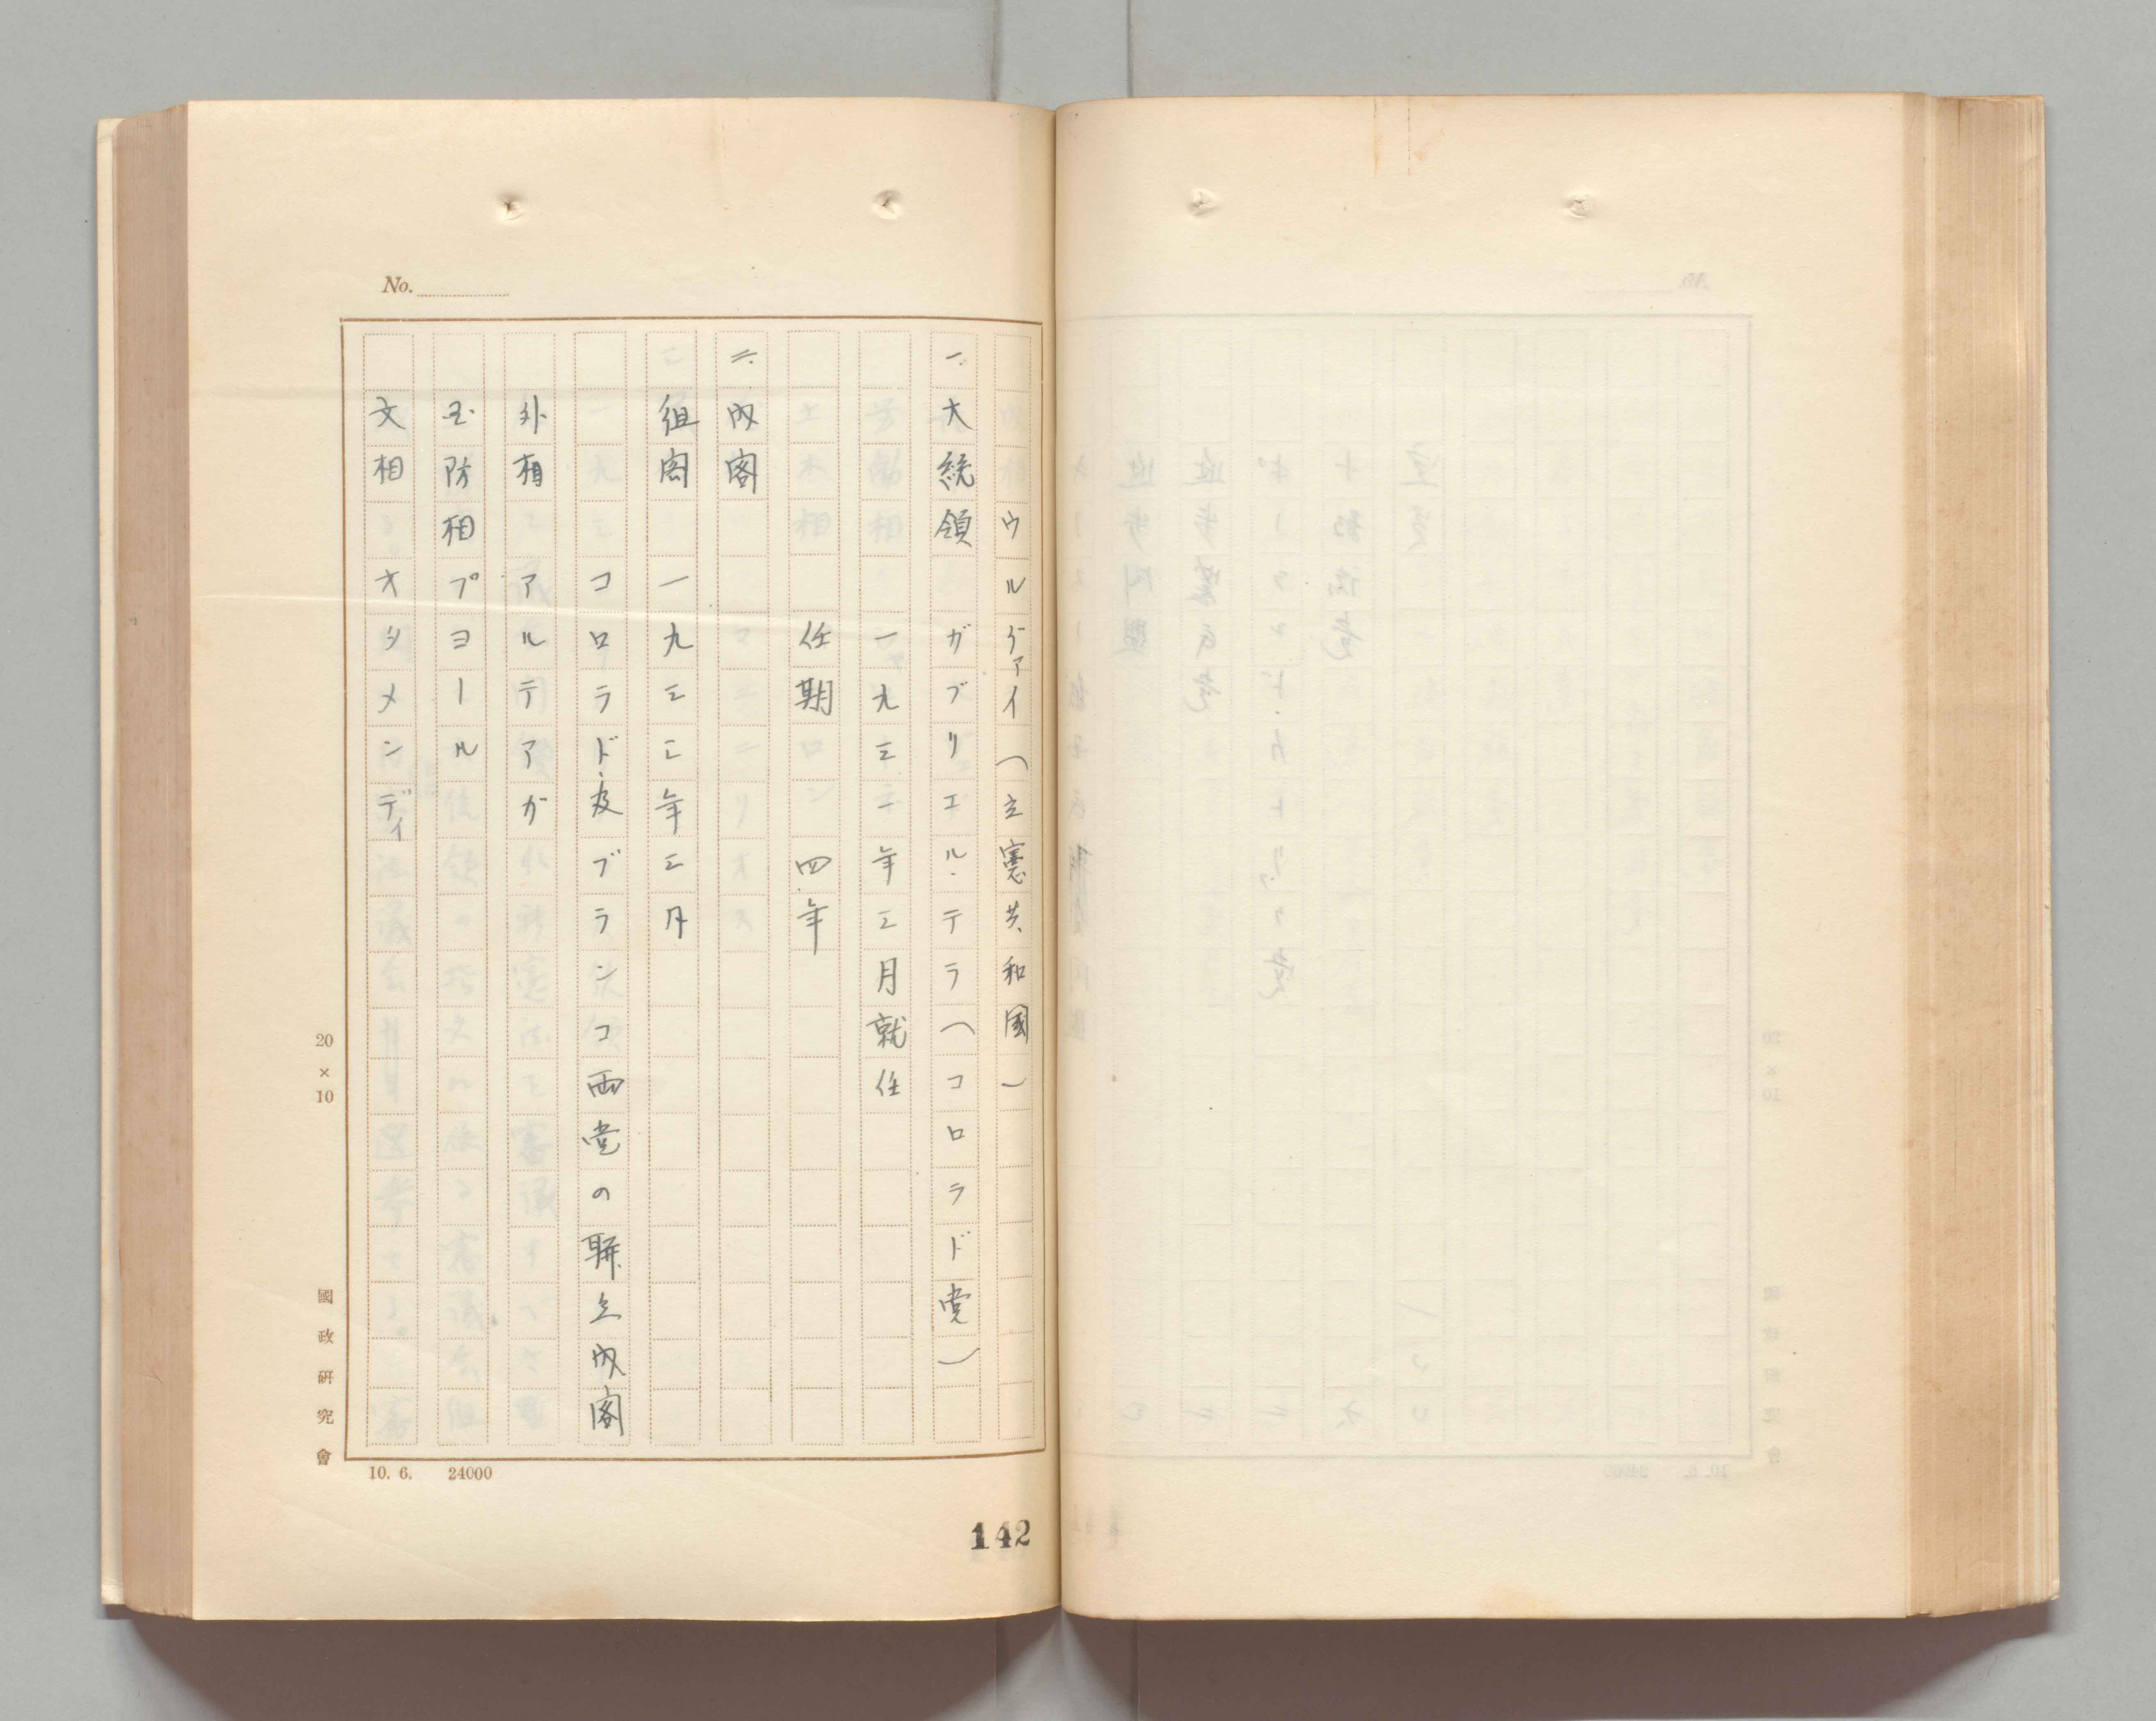 No.
ウルグァイ(立憲共和國)
一. 大統領 ガブリエル・テラ(コロラド党)
一九三二年三月就任
任期 四年
二. 内閣
組閣 一九三三年三月
コロラド・及ブランコ両党の聯立内閣
外相 アルテアガ
国防相 プヨール
文相 オタメンディ
20×10
國政研究會
10. 6. 24000
142